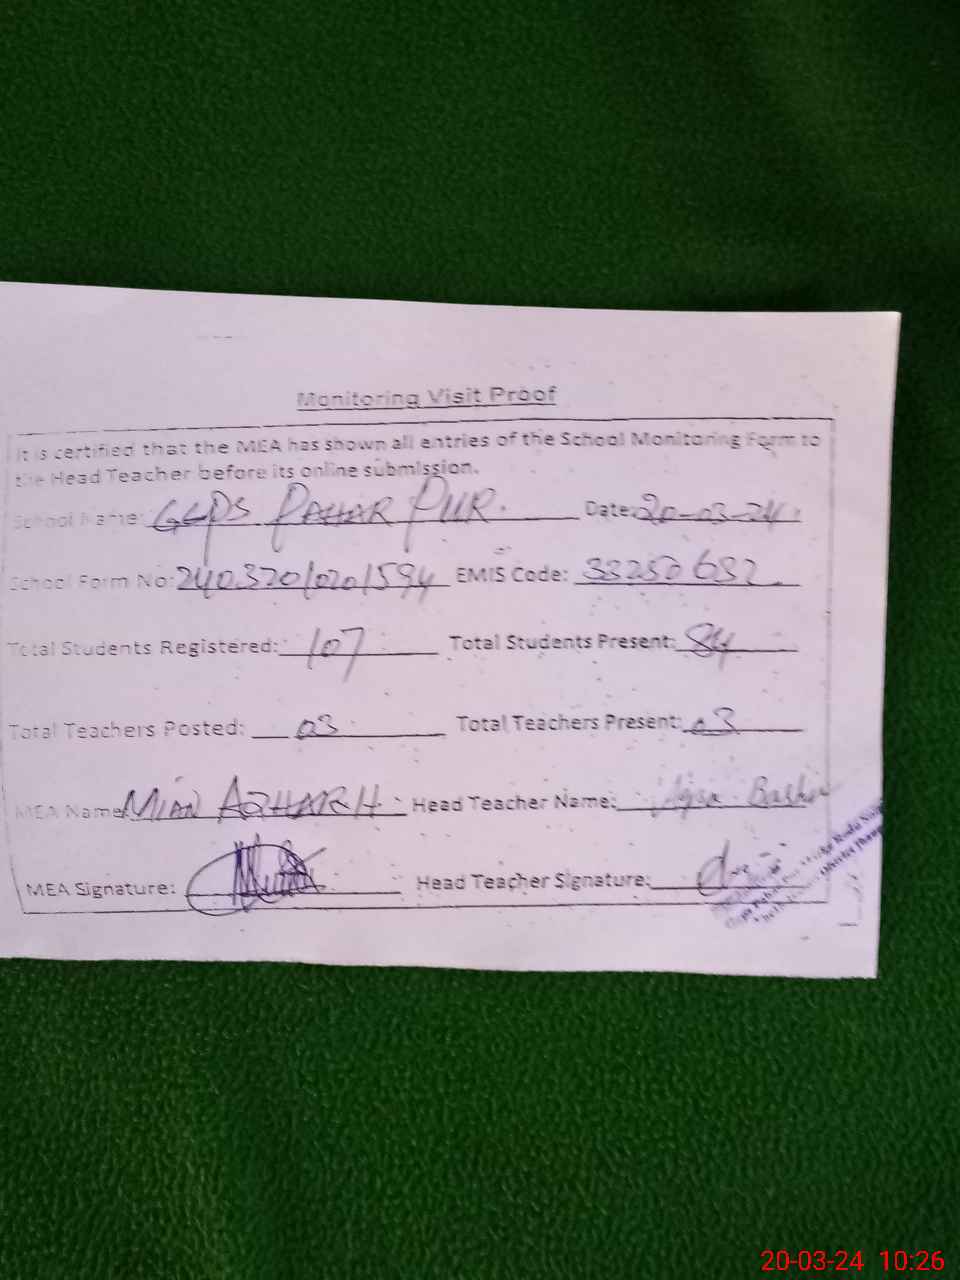 Monitoring Visit Proof
It is certified that the MEA has shown all entries of the School Monitoring Form to
the Head Teacher before its online submission.
School Name: GGPS PAHAR PUR. Date: 20-03-24
School Form No: EMIS Code: 33250632
Total Students Registered: 107 Total Students Present: 84
Total Teachers Posted: 03 Total Teachers Present: 03
MEA Name: MIAN AZHAR H Head Teacher Name: Aqsa Bashir
MEA Signature: Head Teacher Signature:
20-03-24 10:26